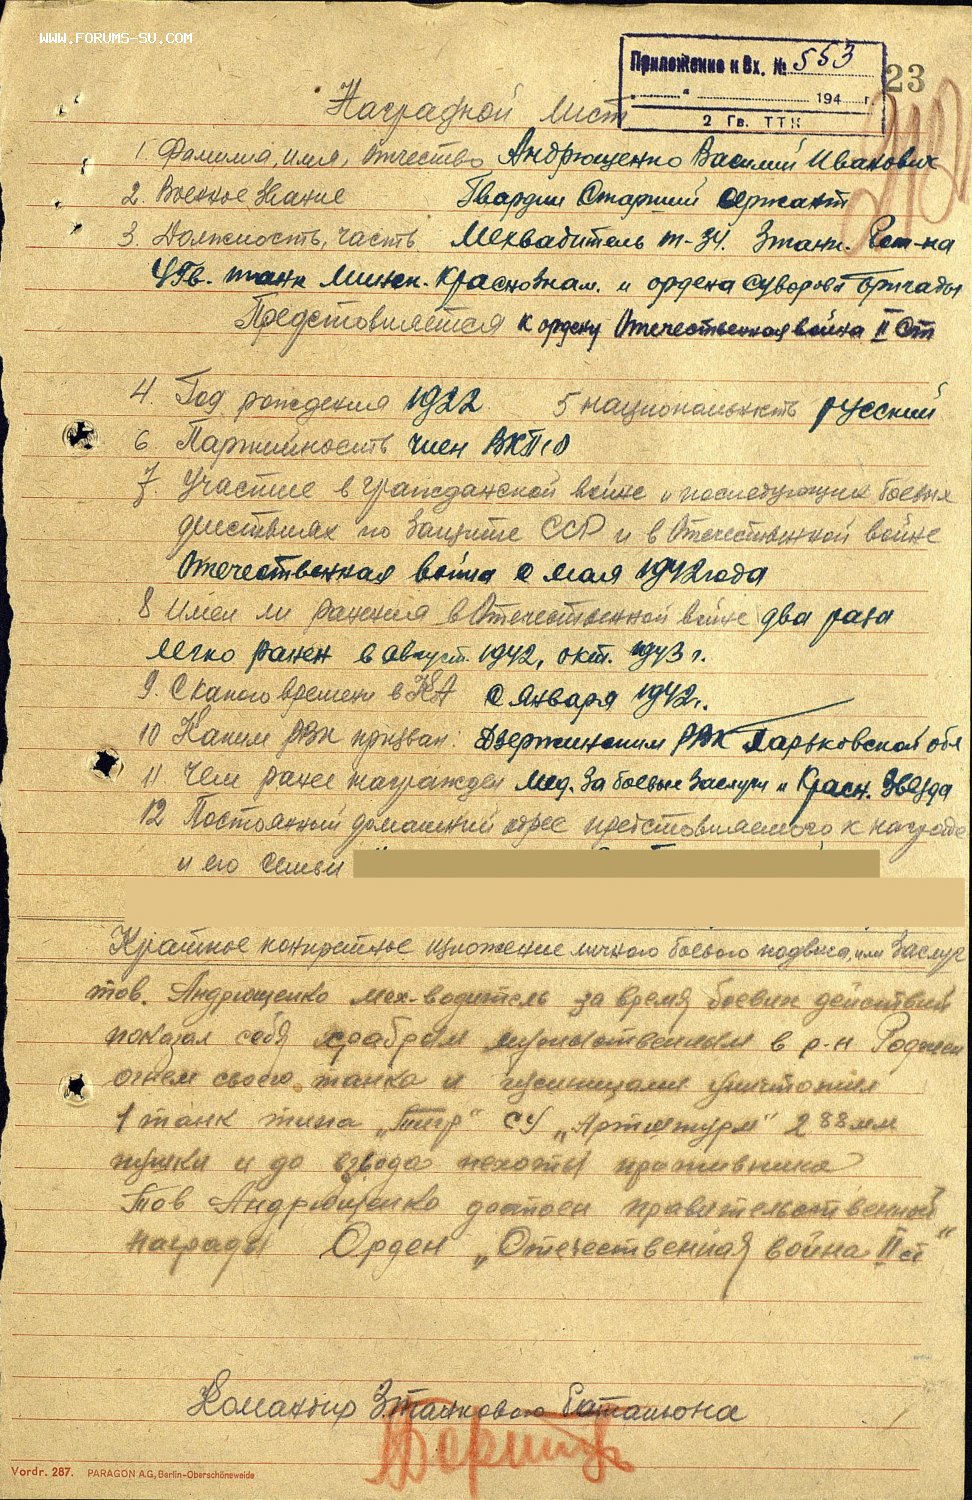 WWW.FORUMS-SU.COM
Приложение к Вх. № 553
" 194 г.
2 Гв. ТТК
23
Наградной Лист
1. Фамилия, имя, отчество Андрющенко Василий Иванович
2. Военное звание Гвардии Старший сержант
3. Должность, часть Мехвадитель т-34. 3 танк. бат-на
4 Гв. танк Минск. Краснознам. и ордена Суворова бригады
Представляется к ордену Отечественная война II Ст
4 Год рождения 1922 5 национальность русский
6 Партийность член ВКП/б
7. Участие в гражданской войне и последующих боевых
действиях по защите СССР и в Отечественной войне
Отечественная война с мая 1942 года
8 Имел ли ранения в Отечественной войне два раза
легко ранен в август. 1942, окт. 1943 г.
9. С какого времени в КА с января 1942 г.
10 Каким РВК призван: Дзержинским РВК Харьковской обл
11 Чем ранее награжден мед. За боевые заслуги и Красн. Звезда
12 Постоянный домашний адрес представляемого к награде
и его семьи
Краткое конкретное изложение личного боевого подвига, или заслуг
тов. Андрющенко мех-водитель за время боевых действий
показал себя храбрым мужественным в р-н
огнем своего танка и гусеницами уничтожил
1 танк типа „Тигр" СУ „Артштурм" 2 88 мм
пушки и до взвода пехоты противника
Тов Андрющенко достоен правительственной
награды Орден „Отечественная война II ст"
Командир 3 танкового батальона
Vordr. 287. PARAGON A.G., Berlin-Oberschöneweide